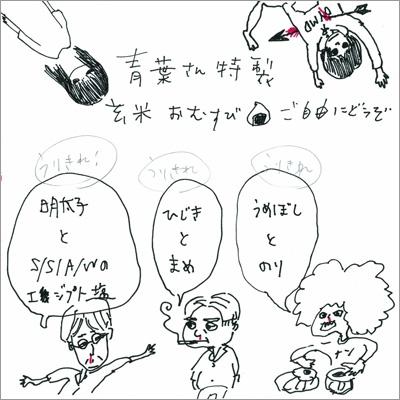 青葉さん特製
玄米 おむすび ご自由にどうぞ
うりきれ!
うりきれ
うりきれ
明太子
と
S/S/A/W の
エジプト塩
ひじき
と
まめ
うめぼし
と
のり